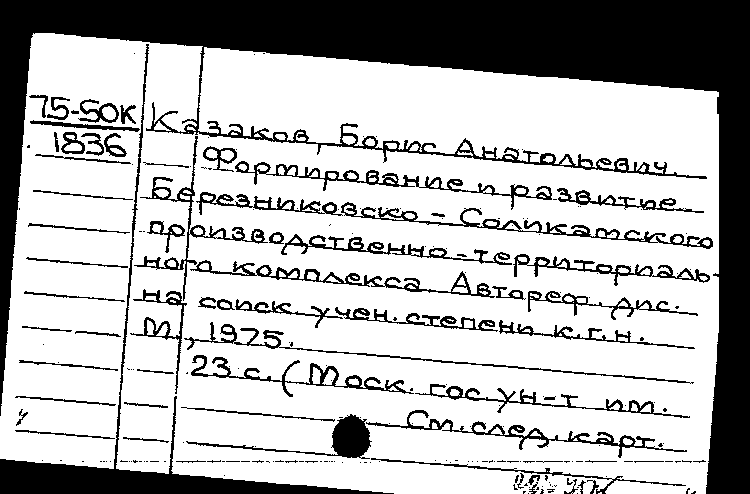 75-50К
1836
Казаков, Борис Анатольевич.
Формирование и развитие
Березниковско-Соликамского
производственно-территориаль-
ного комплекса. Автореф. дис.
на соиск. учен. степени к.г.н.
М., 1975.
23 с. (Моск. гос. ун-т им.
См. след. карт.